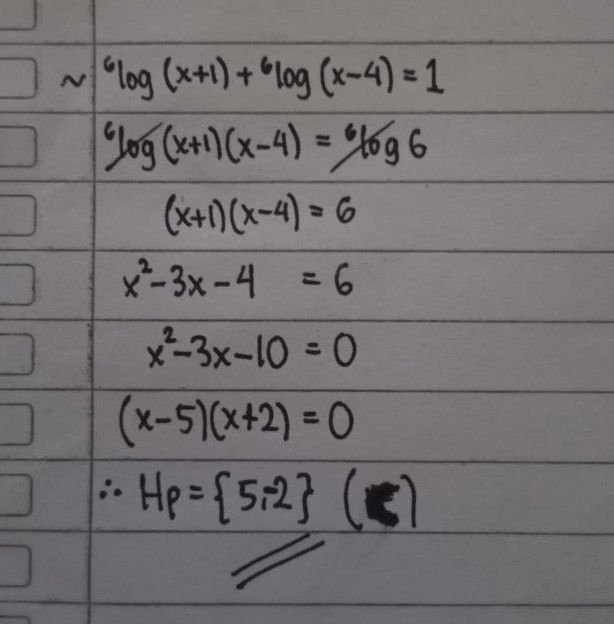 ~ ⁶log (x+1) + ⁶log (x-4) = 1
⁶log (x+1)(x-4) = ⁶log 6
(x+1)(x-4) = 6
x²-3x-4 = 6
x²-3x-10 = 0
(x-5)(x+2) = 0
∴ Hp = {5;-2} ( )